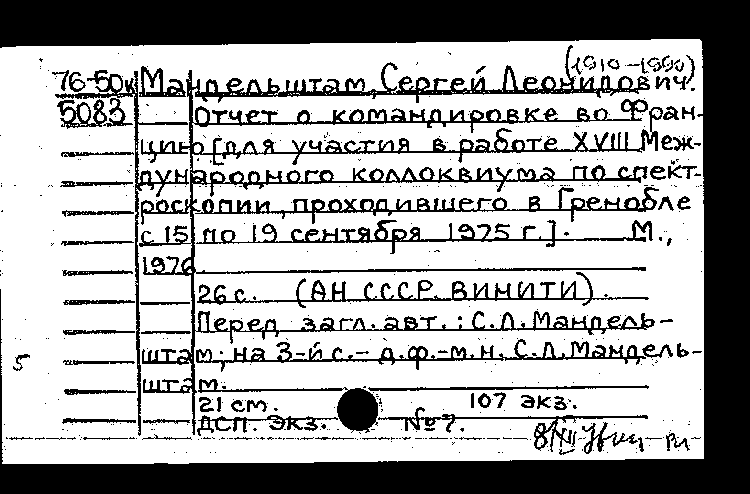 (1910-1990)
76-50к Мандельштам, Сергей Леонидович.
5083 Отчет о командировке во Фран-
цию [для участия в работе XVIII Меж-
дународного коллоквиума по спект-
роскопии, проходившего в Гренобле
с 15 по 19 сентября 1975 г.]. М.,
1976.
26 с. (АН СССР. ВИНИТИ).
Перед загл. авт.: С.Л. Мандель-
штам; на 3-й с. - д.ф.-м.н. С.Л. Мандель-
5
штам.
21 см. 107 экз.
ДСП. Экз. № 7.
8/XII